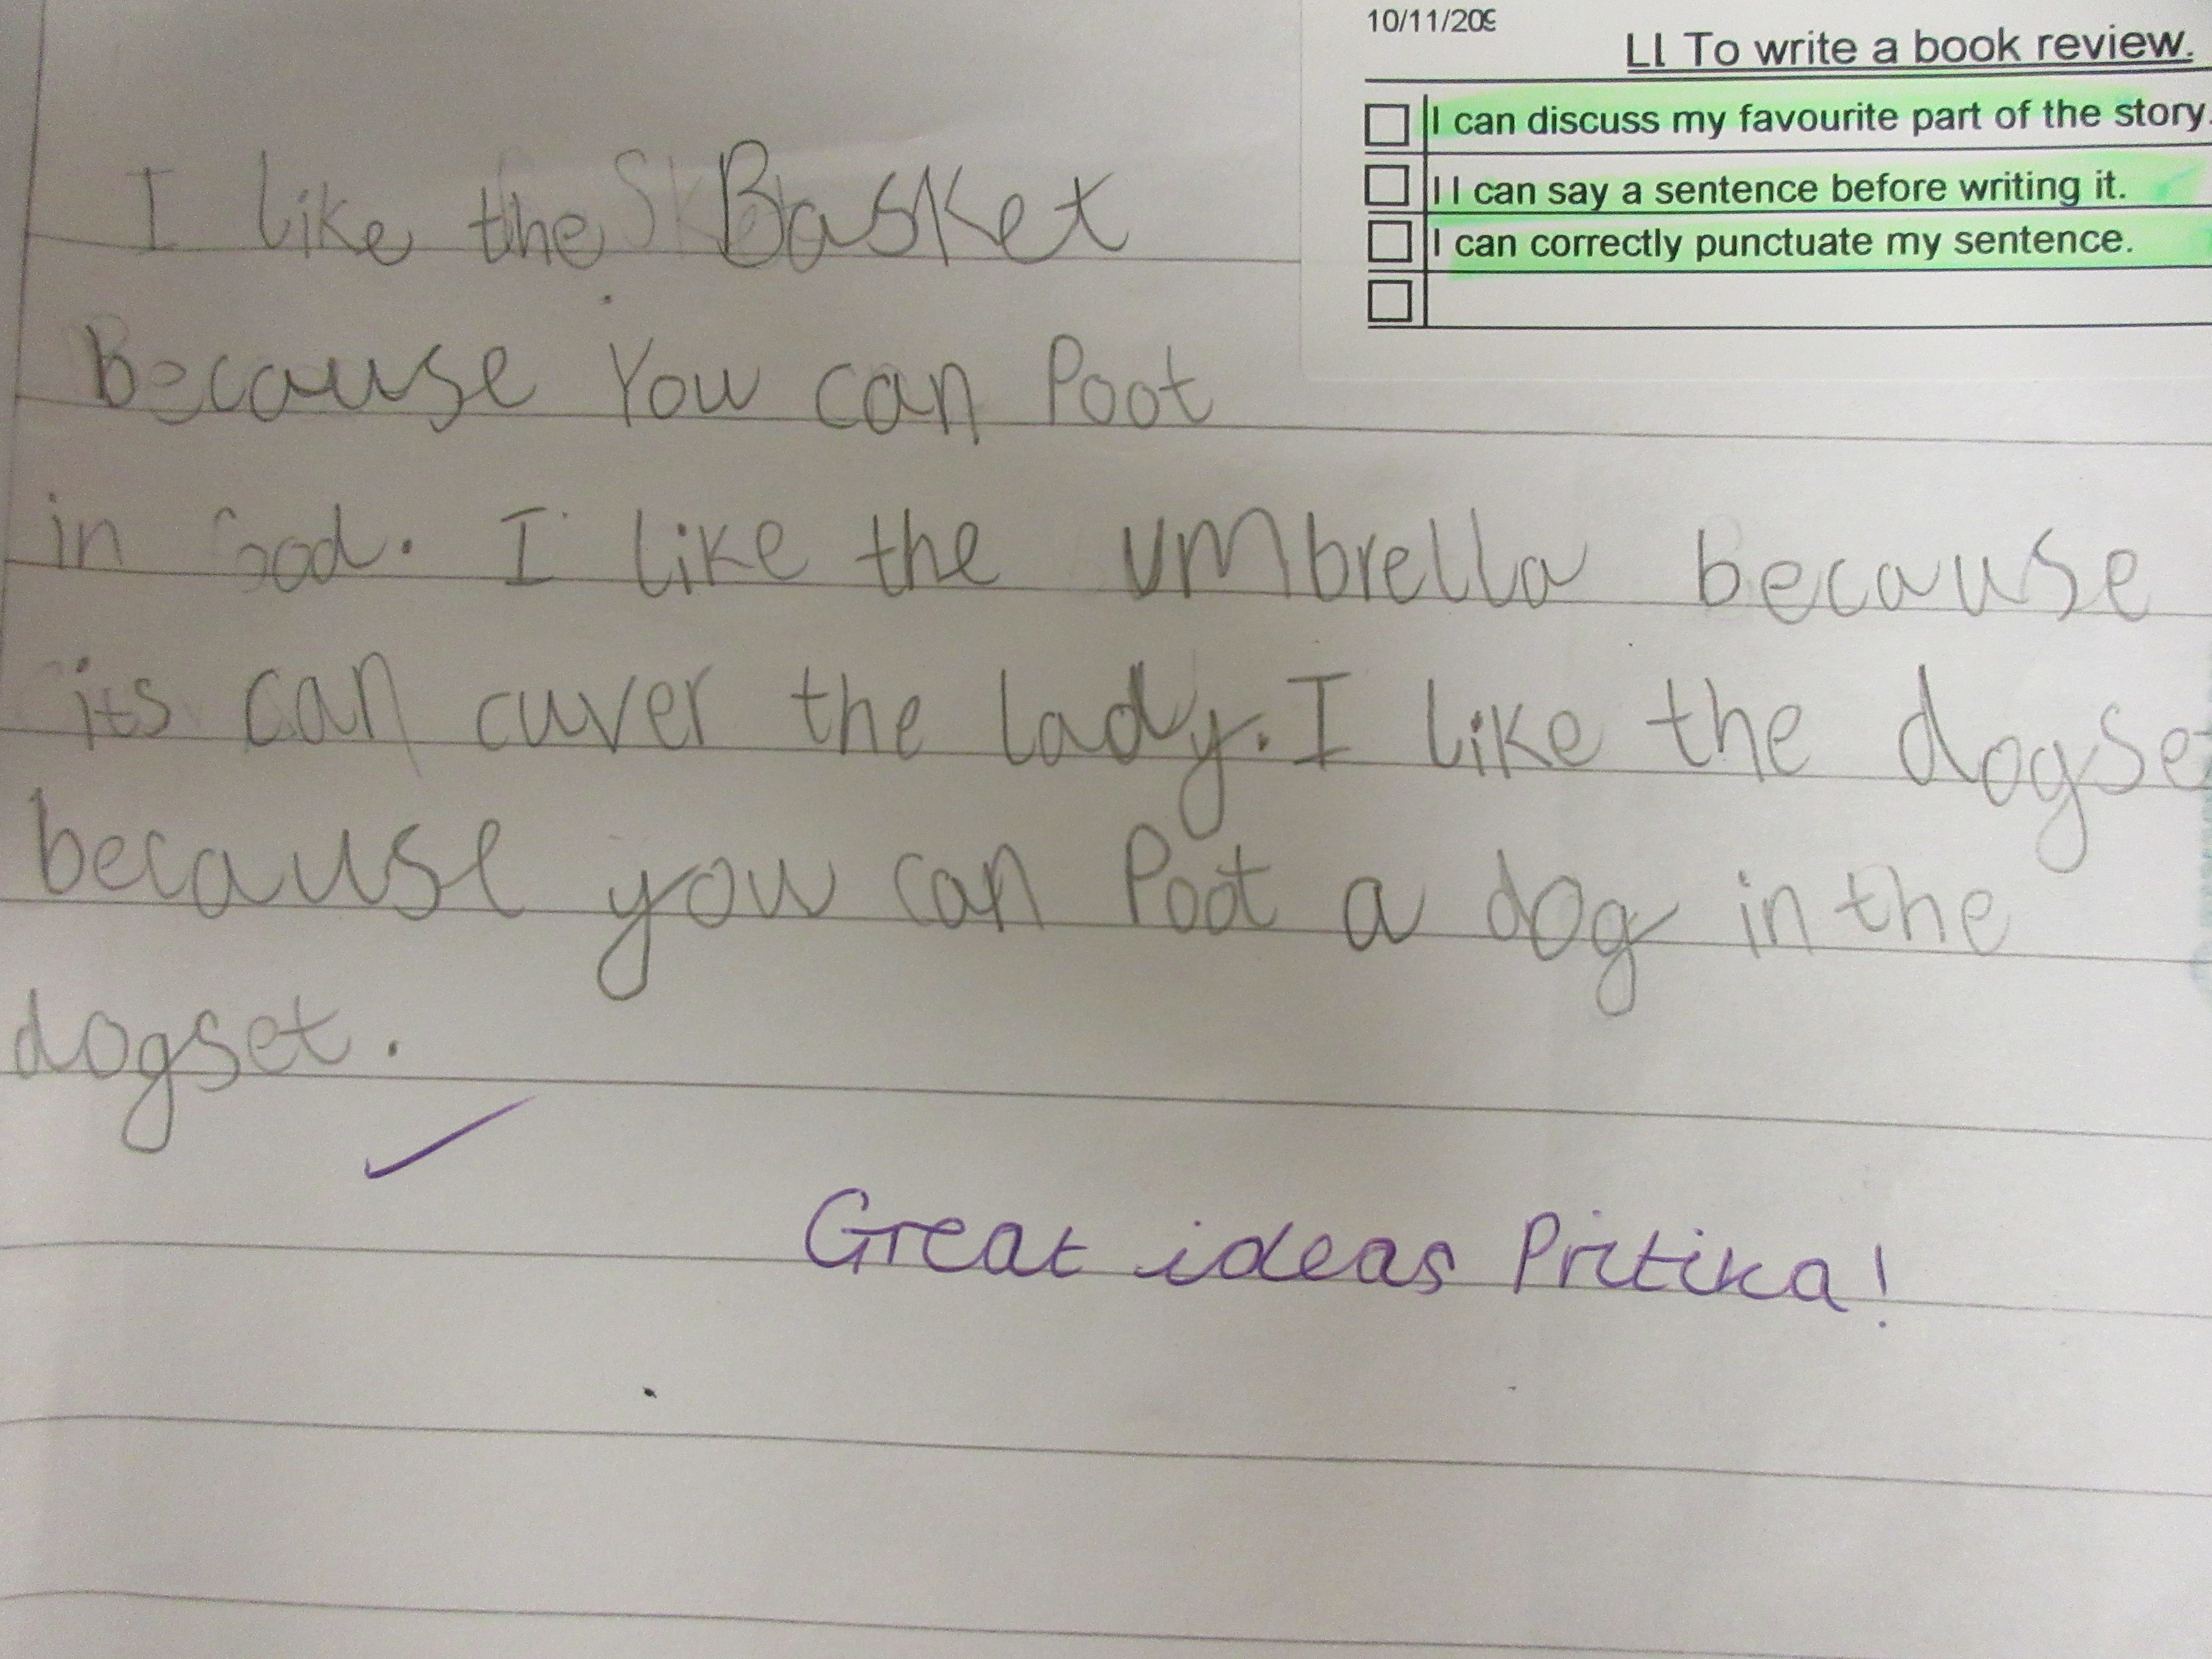 10/11/209
LI To write a book review.
I can discuss my favourite part of the story.
I I can say a sentence before writing it.
I can correctly punctuate my sentence.
I like the Basket
because You can Poot
in . I like the umbrella because
its can cuver the lady. I like the dogset
because you can Poot a dog in the
dogset.
Great ideas Pritika!